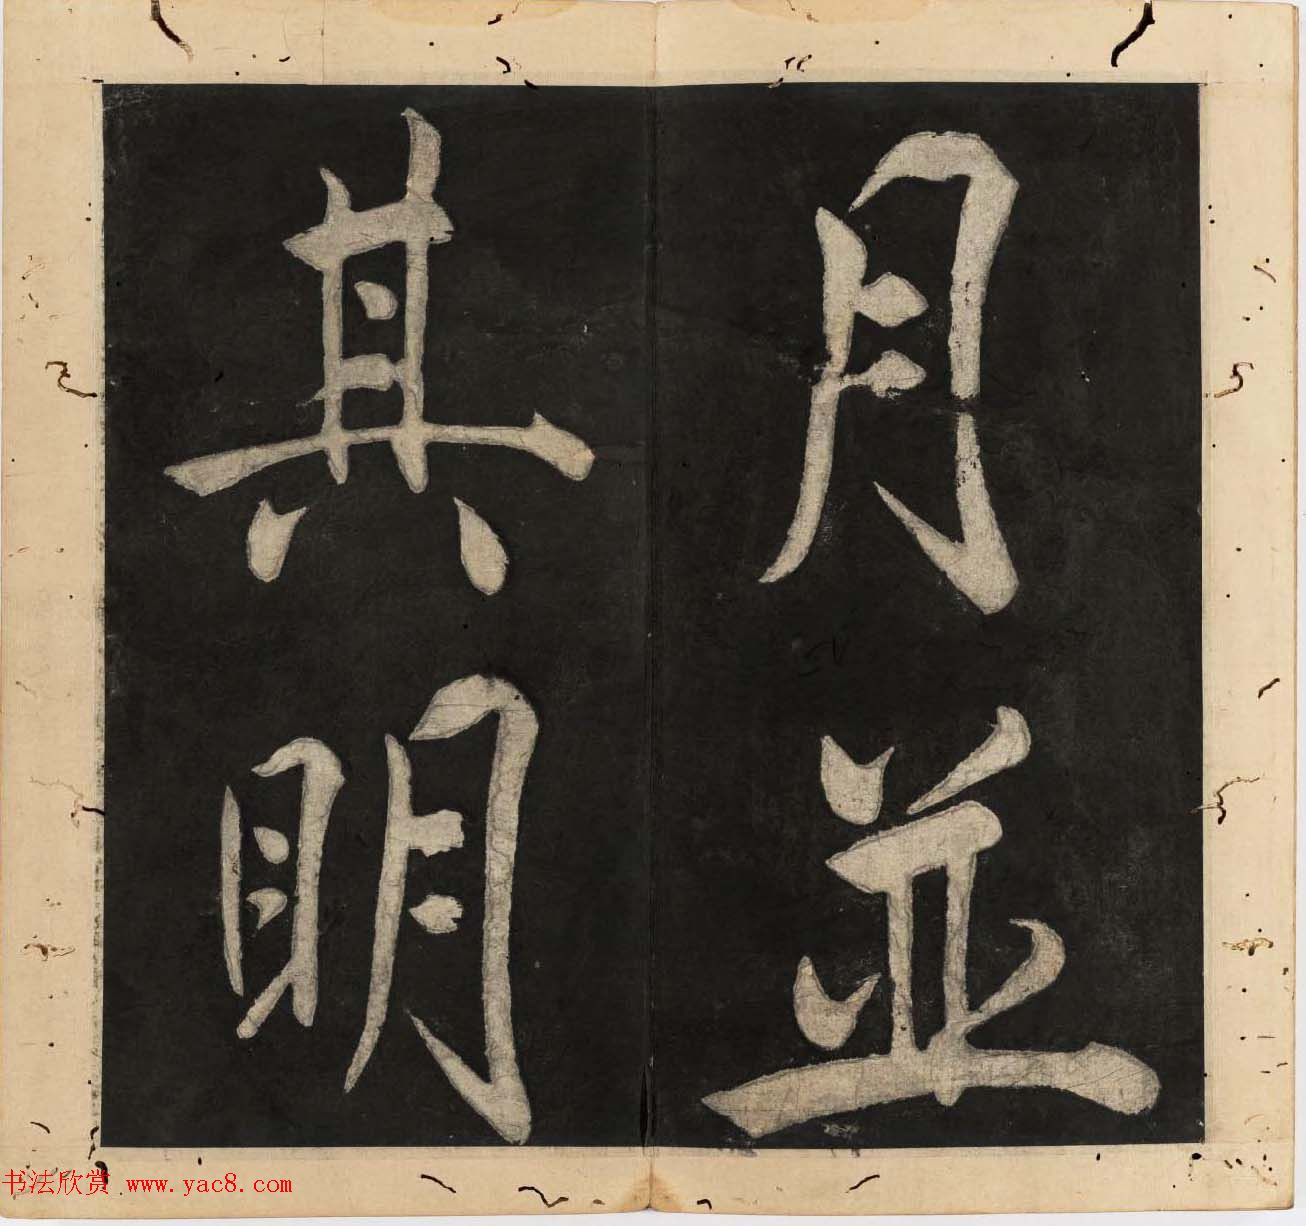 月並
其明
书法欣赏 www.yac8.com